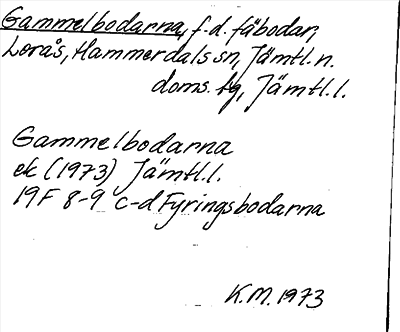 Gammelbodarna, f.d. fäbodar,
Lorås, Hammerdals sn, Jämtl. n.
doms. tg, Jämtl. l.
Gammelbodarna
ek (1973) Jämtl. l.
19F 8-9 c-d Fyringsbodarna
K.M. 1973